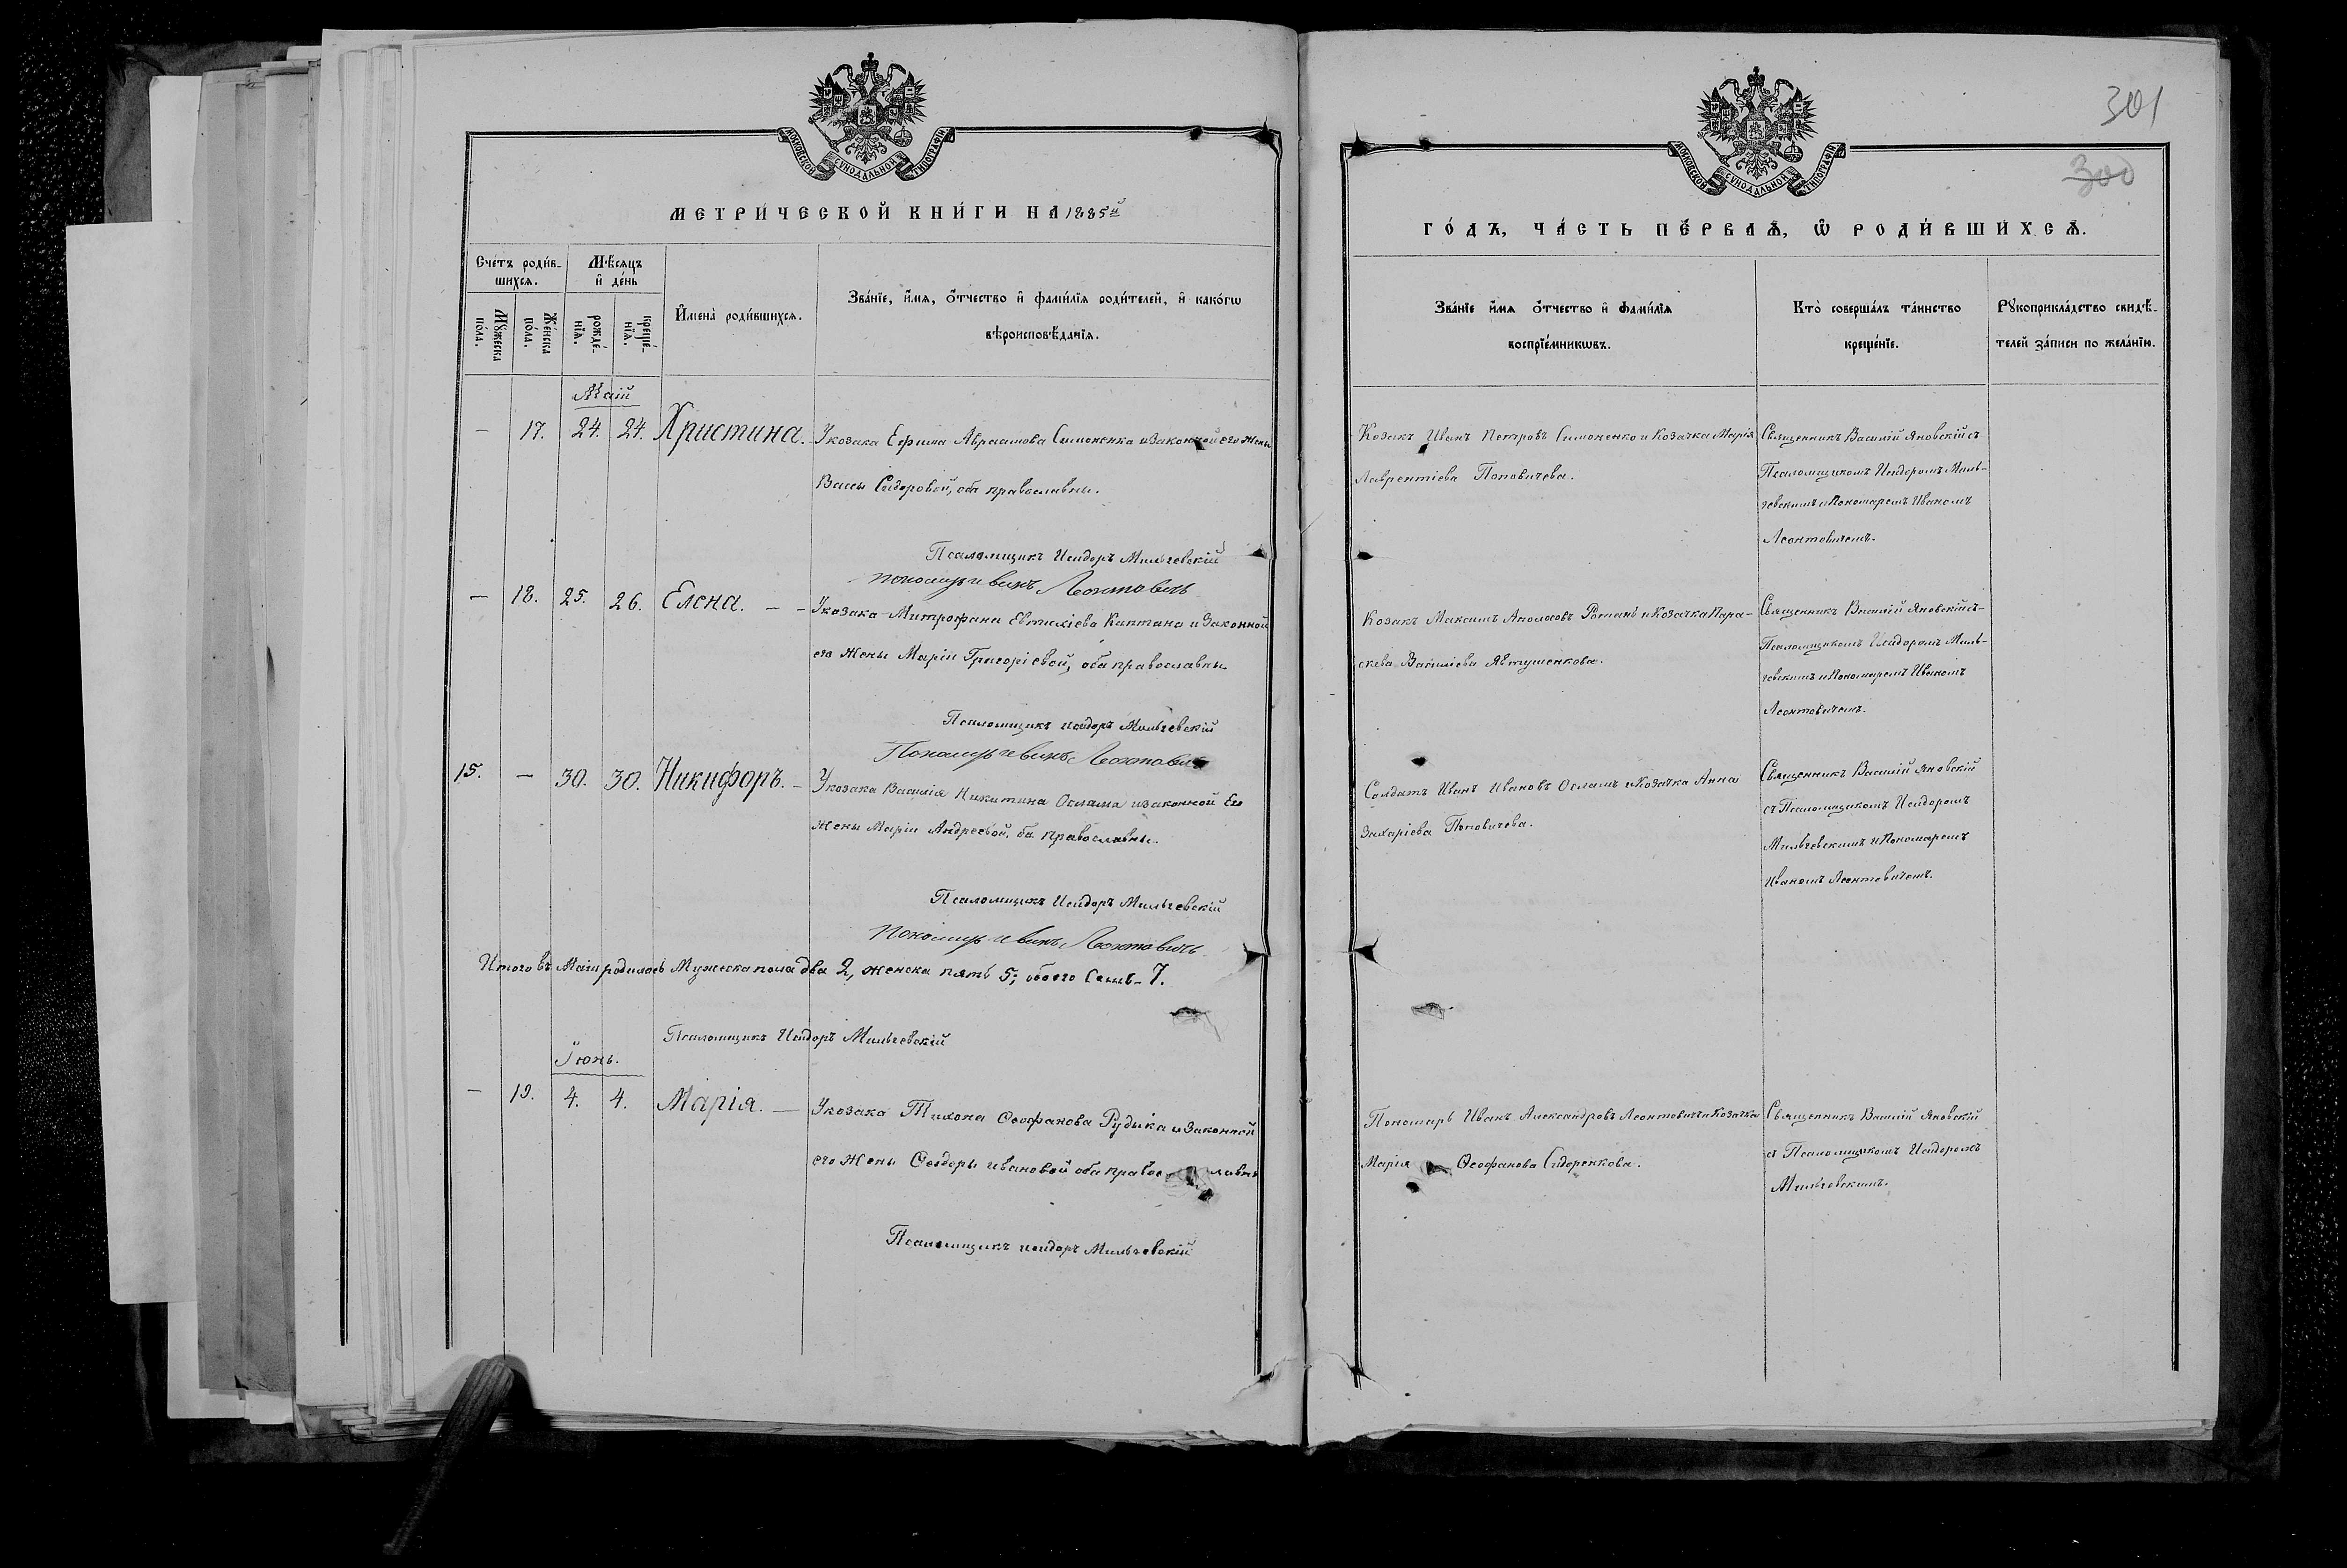 МОСКОВСКОЙ СѴНОДАЛЬНОЙ ТИПОГРАФІИ
МЕТРИ́ЧЕСКОЙ КНИ́ГИ НА 1885й
Сче́тъ роди́в-
шихся.
Мѣ́сяцъ
и҆ де́нь
Мꙋ́жеска
по́ла.
Же́нска
по́ла.
рожде́-
нїѧ.
креще́-
нїѧ.
И҆мена̀ роди́вшихсѧ.
Зва́нїе, и҆́мѧ, ѻ҆́тчество и҆ фами́лїѧ роди́телей, и҆ како́гѡ
вѣроисповѣ́данїѧ.
Маій
— 17. 24. 24. Христина. У козака Ефима Авраамова Симоненка и законной его жены
Вассы Сидоровой, оба православны.
Псаломщикъ Исидоръ Мильчевскій
Пономарь Иванъ Леонтовичъ
— 18. 25. 26. Елена. — – У козака Митрофана Евтихіева Каптана и законной
его жены Маріи Григоріевой, оба православны.
Псаломщикъ Исидоръ Мильчевскій
Пономарь Иванъ Леонтовичъ
15. — 30. 30. Никифоръ. – У козака Василія Никитина Ослама и законной Его
жены Маріи Андреевой, ба православны.
Псаломщикъ Исидоръ Мильчевскій
Пономарь Иванъ Леонтовичъ
Итого въ Маіи родилось Мужеска пола два 2, женска пять 5; обоего Семь – 7.
Псаломщикъ Исидоръ Мильчевскій
Іюнь.
— 19. 4. 4. Марія. — У козака Тихона Ѳеофанова Рудыка и законной
его жены Ѳеодоры Ивановой оба православны
Псаломщикъ Исидоръ Мильчевскій
301
300
МОСКОВСКОЙ СѴНОДАЛЬНОЙ ТИПОГРАФІИ
ГО́ДЪ, ЧА́СТЬ ПЕ́РВАѦ, Ѡ҆ РОДИ́ВШИХСѦ.
Зва́нїе и҆́мѧ ѻ҆́тчество и҆ фами́лїѧ
воспрїе́мникѡвъ.
Кто̀ соверша́лъ та́инство
креще́нїе.
Рꙋкоприкла́дство свидѣ́-
телей за́писи по жела́нїю.
Козакъ Иванъ Петровъ Симоненко и Козачка Марія
Лаврентіева Поповичева.
Священникъ Василій Яновскій съ
Псаломщикомъ Исидоромъ Миль-
чевскимъ и Пономаремъ Иваномъ
Леонтовичемъ.
Козакъ Максимъ Аполосовъ Романъ и Козачка Пара-
скева Василіева Явтушенкова.
Священникъ Василій Яновскій съ
Псаломщикомъ Исидоромъ Миль-
чевскимъ и Пономаремъ Иваномъ
Леонтовичемъ.
Солдатъ Иванъ Ивановъ Осламъ и Козачка Анна
Захаріева Поповичева.
Священникъ Василій Яновскій
съ Псаломщикомъ Исидоромъ
Мильчевскимъ и Пономаремъ
Иваномъ Леонтовичемъ.
Пономарь Иванъ Александровъ Леонтовичъ и Козачка
Марія Ѳеофанова Сидоренкова.
Священникъ Василій Яновскій
съ Псаломщикомъ Исидоромъ
Мильчевскимъ.